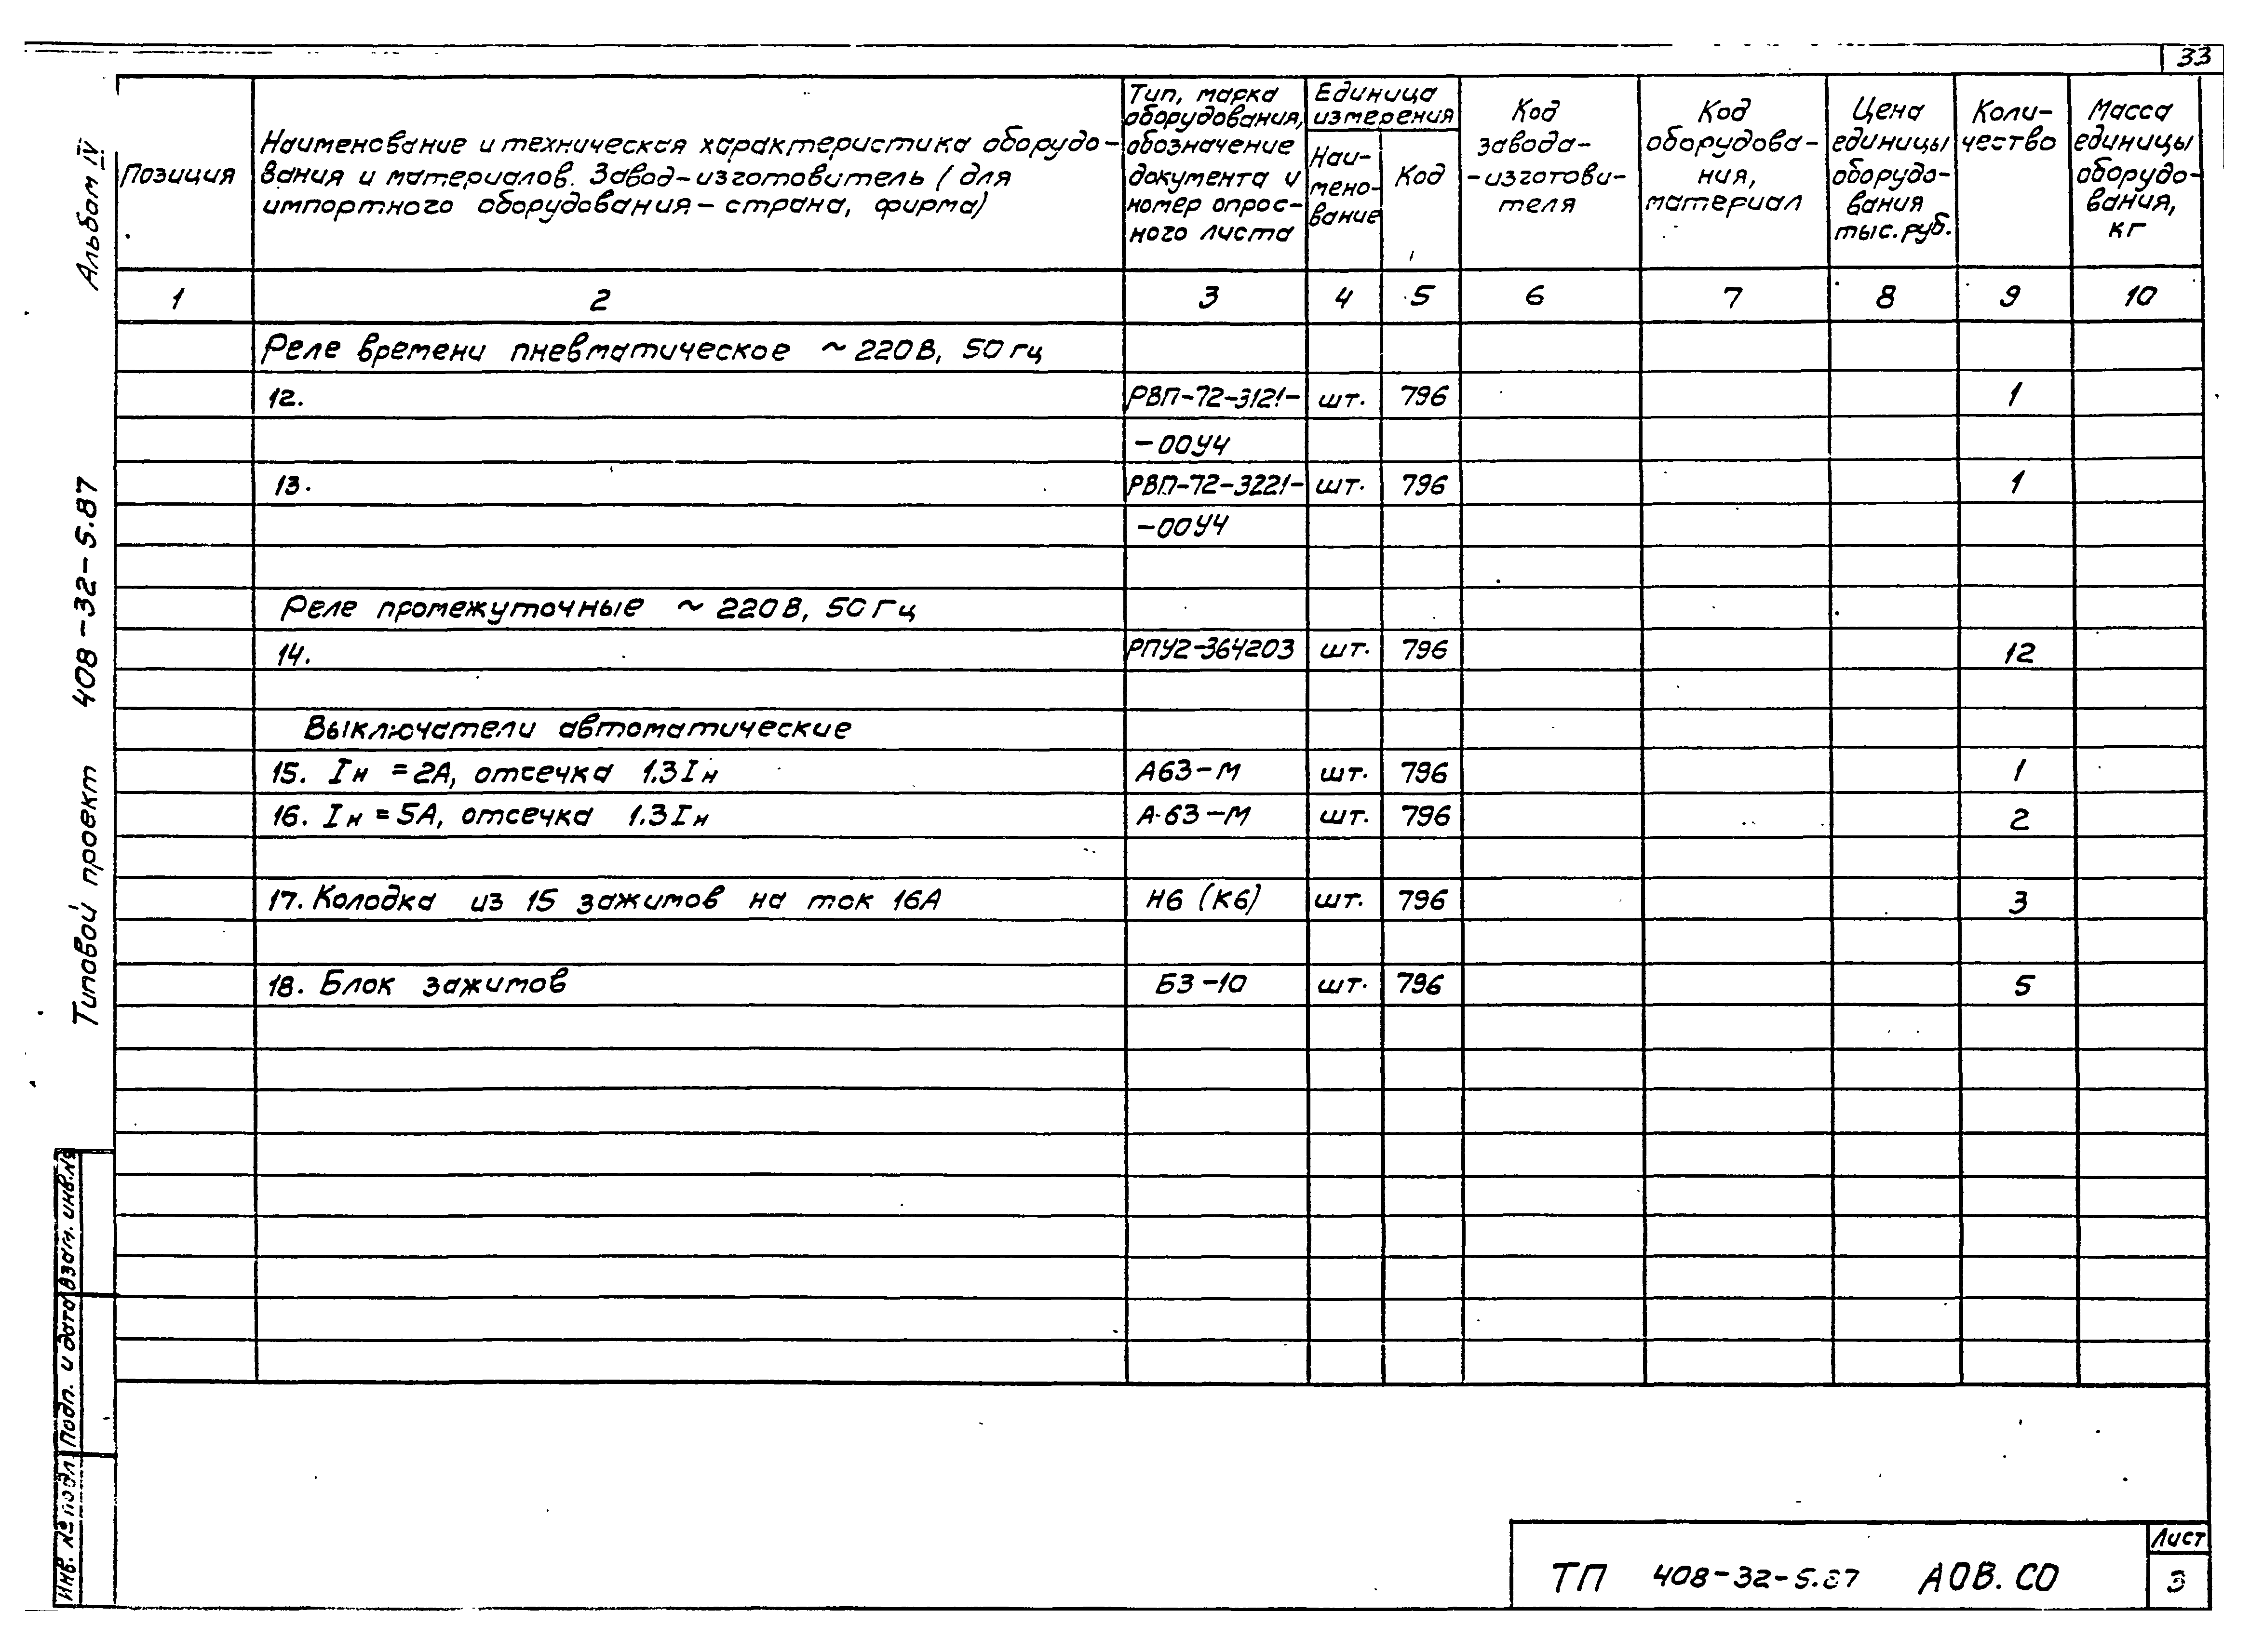 33
Альбом IV
Типовой проект 408-32-5.87
Позиция
Наименование и техническая характеристика оборудо-
вания и материалов. Завод-изготовитель (для
импортного оборудования - страна, фирма)
Тип, марка
оборудования,
обозначение
документа и
номер опрос-
ного листа
Единица
измерения
Наи-
мено-
вание
Код
Код
завода-
-изготови-
теля
Код
оборудова-
ния,
материал
Цена
единицы
оборудо-
вания
тыс. руб.
Коли-
чество
Масса
единицы
оборудо-
вания,
кг
1 2 3 4 5 6 7 8 9 10
Реле времени пневматическое ~ 220В, 50 гц
12. РВП-72-3121- шт. 796 1
-00У4
13. РВП-72-3221- шт. 796 1
-00У4
Реле промежуточные ~ 220В, 50 Гц
14. РПУ2-364203 шт. 796 12
Выключатели автоматические
15. Iн = 2А, отсечка 1.3 Iн А63-М шт. 796 1
16. Iн = 5А, отсечка 1.3 Iн А-63-М шт. 796 2
17. Колодка из 15 зажимов на ток 16А Н6 (К6) шт. 796 3
18. Блок зажимов БЗ-10 шт. 796 5
Взам. инв.№
Подп. и дата
Инв. № подл
ТП 408-32-5.87 АОВ.СО
Лист
3